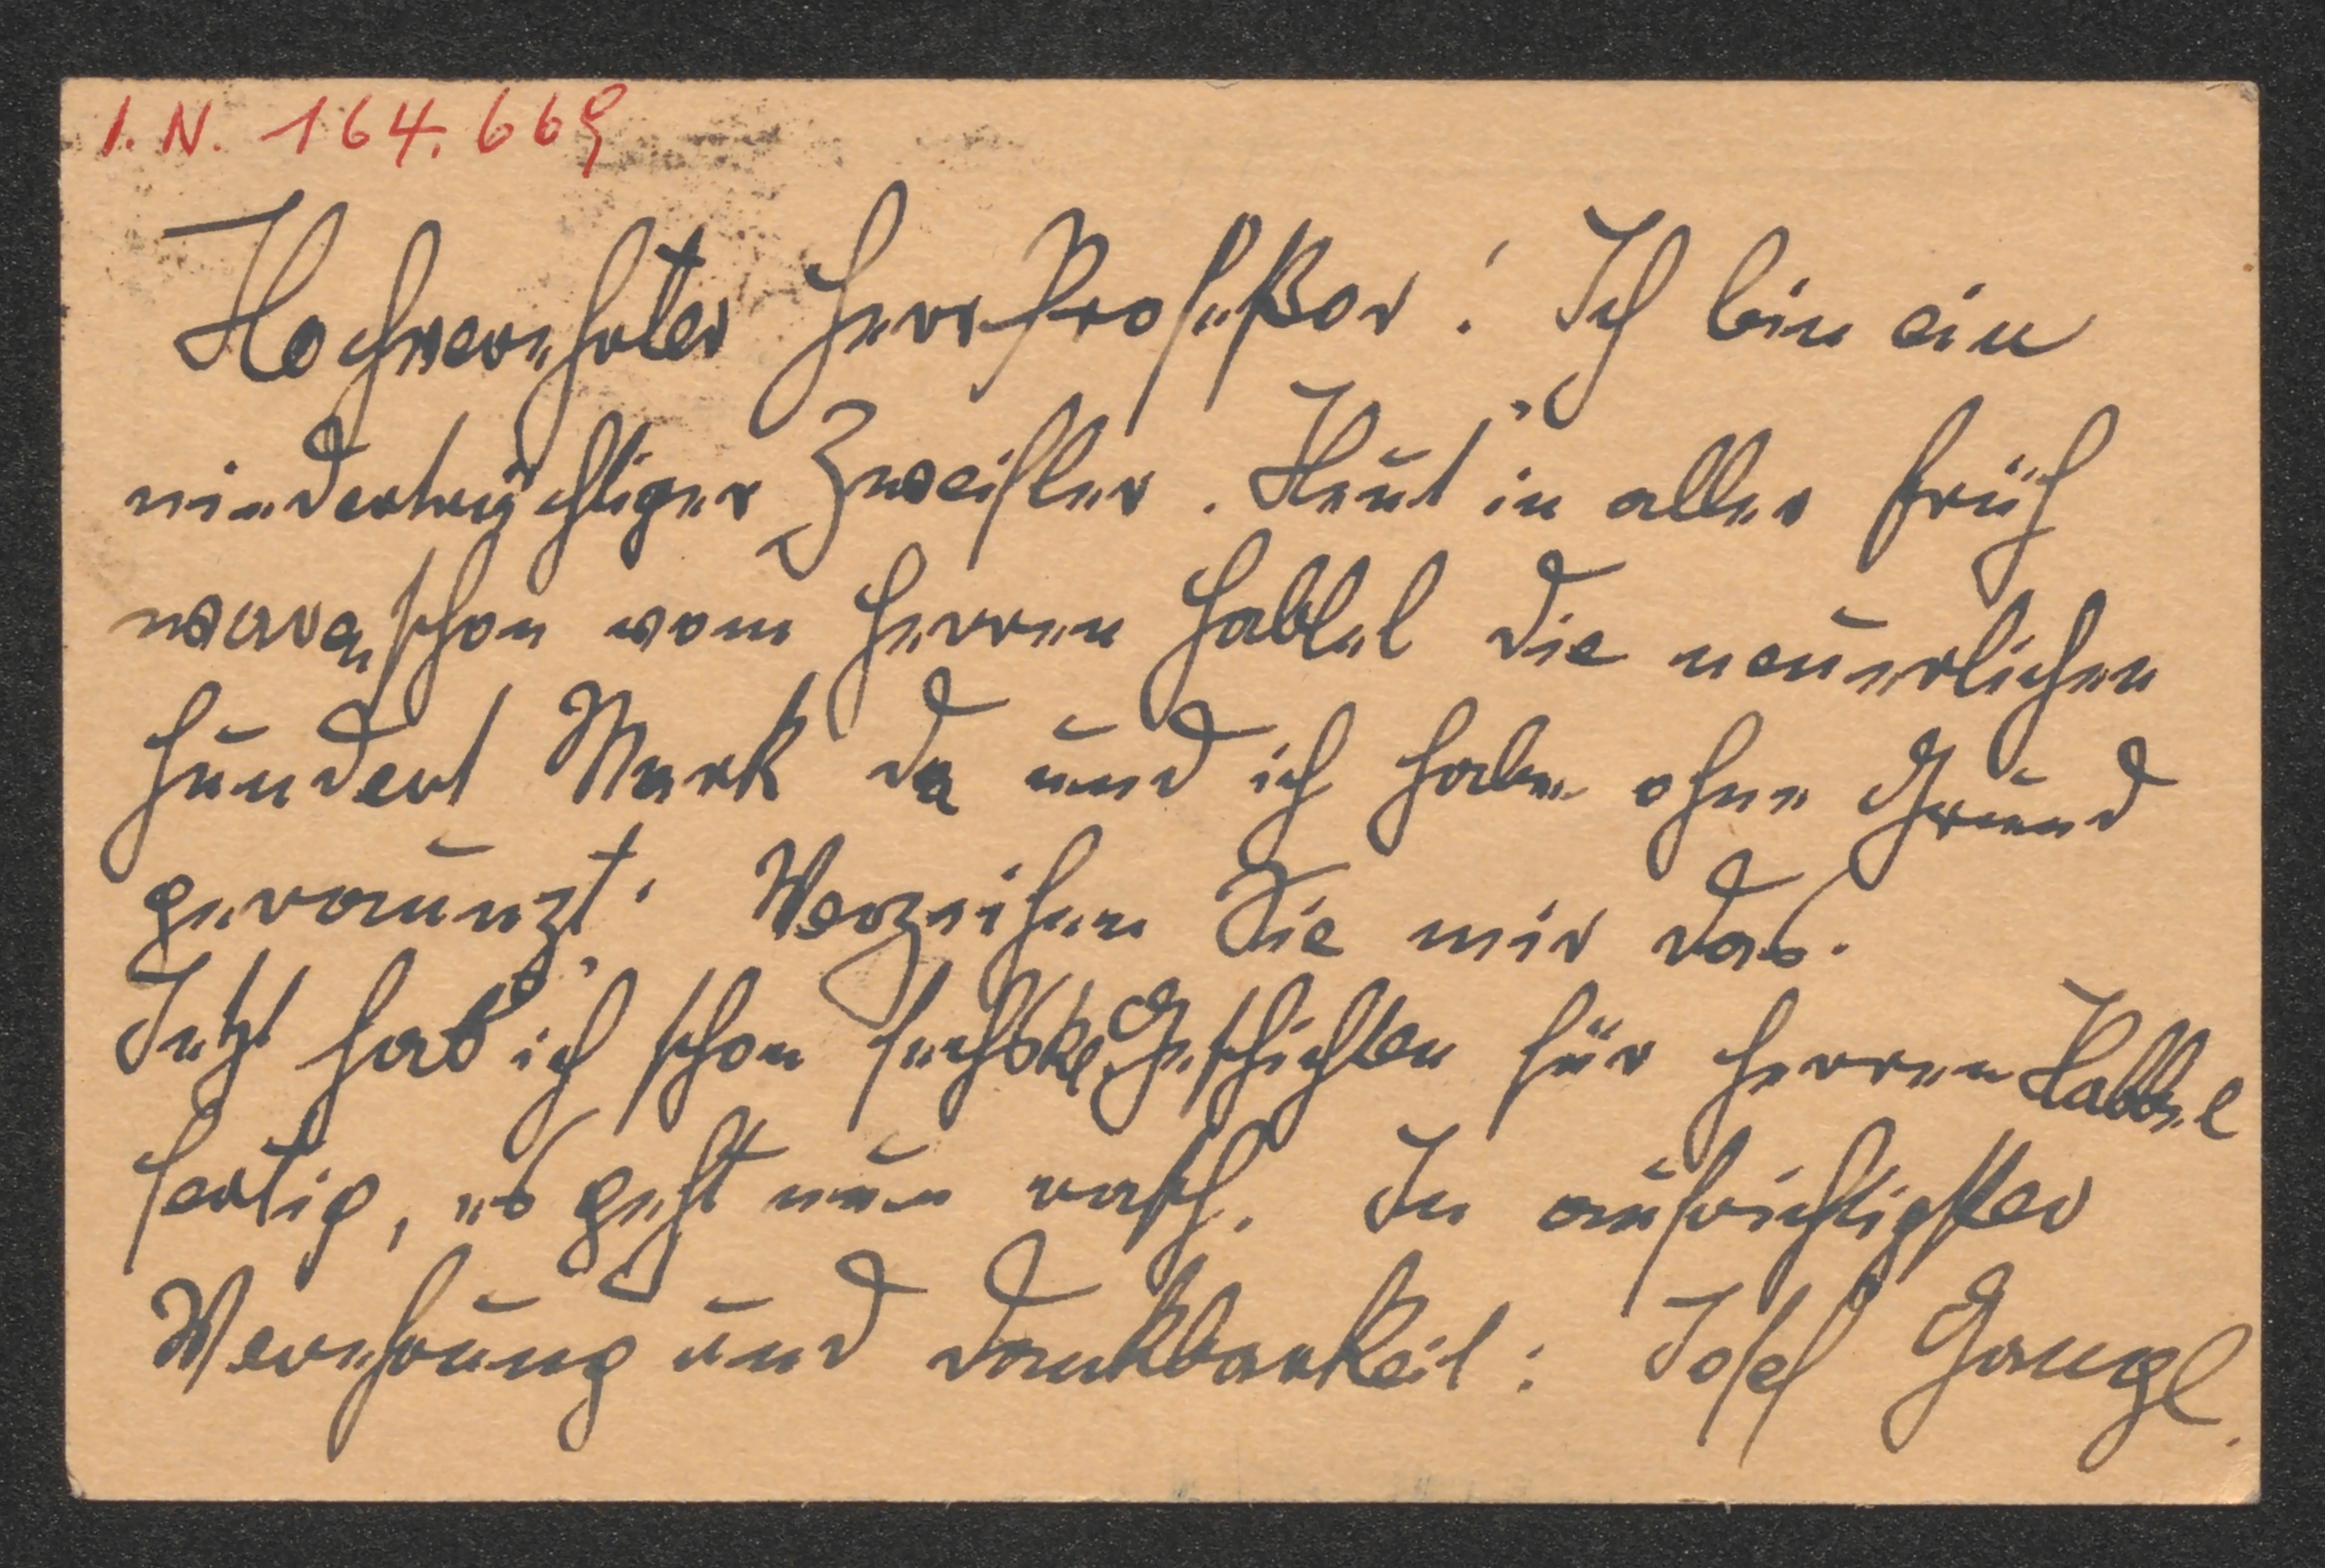 I. N. 164.669
Hochverehrter Herr Profeßor! Ich bin ein
niederträchtiger Zweifler. Heut in aller früh
waren schon vom Herren Habbel die neuerlichen
hundert Mark da und ich habe ohne Grund
geraunzt. Verzeihen Sie mir das.
Jetzt hab ich schon sechs Geschichten für Herren Habbel
fertig, es geht nun rasch. In aufrichtigster
Verehrung und Dankbarkeit: Josef Gangl.